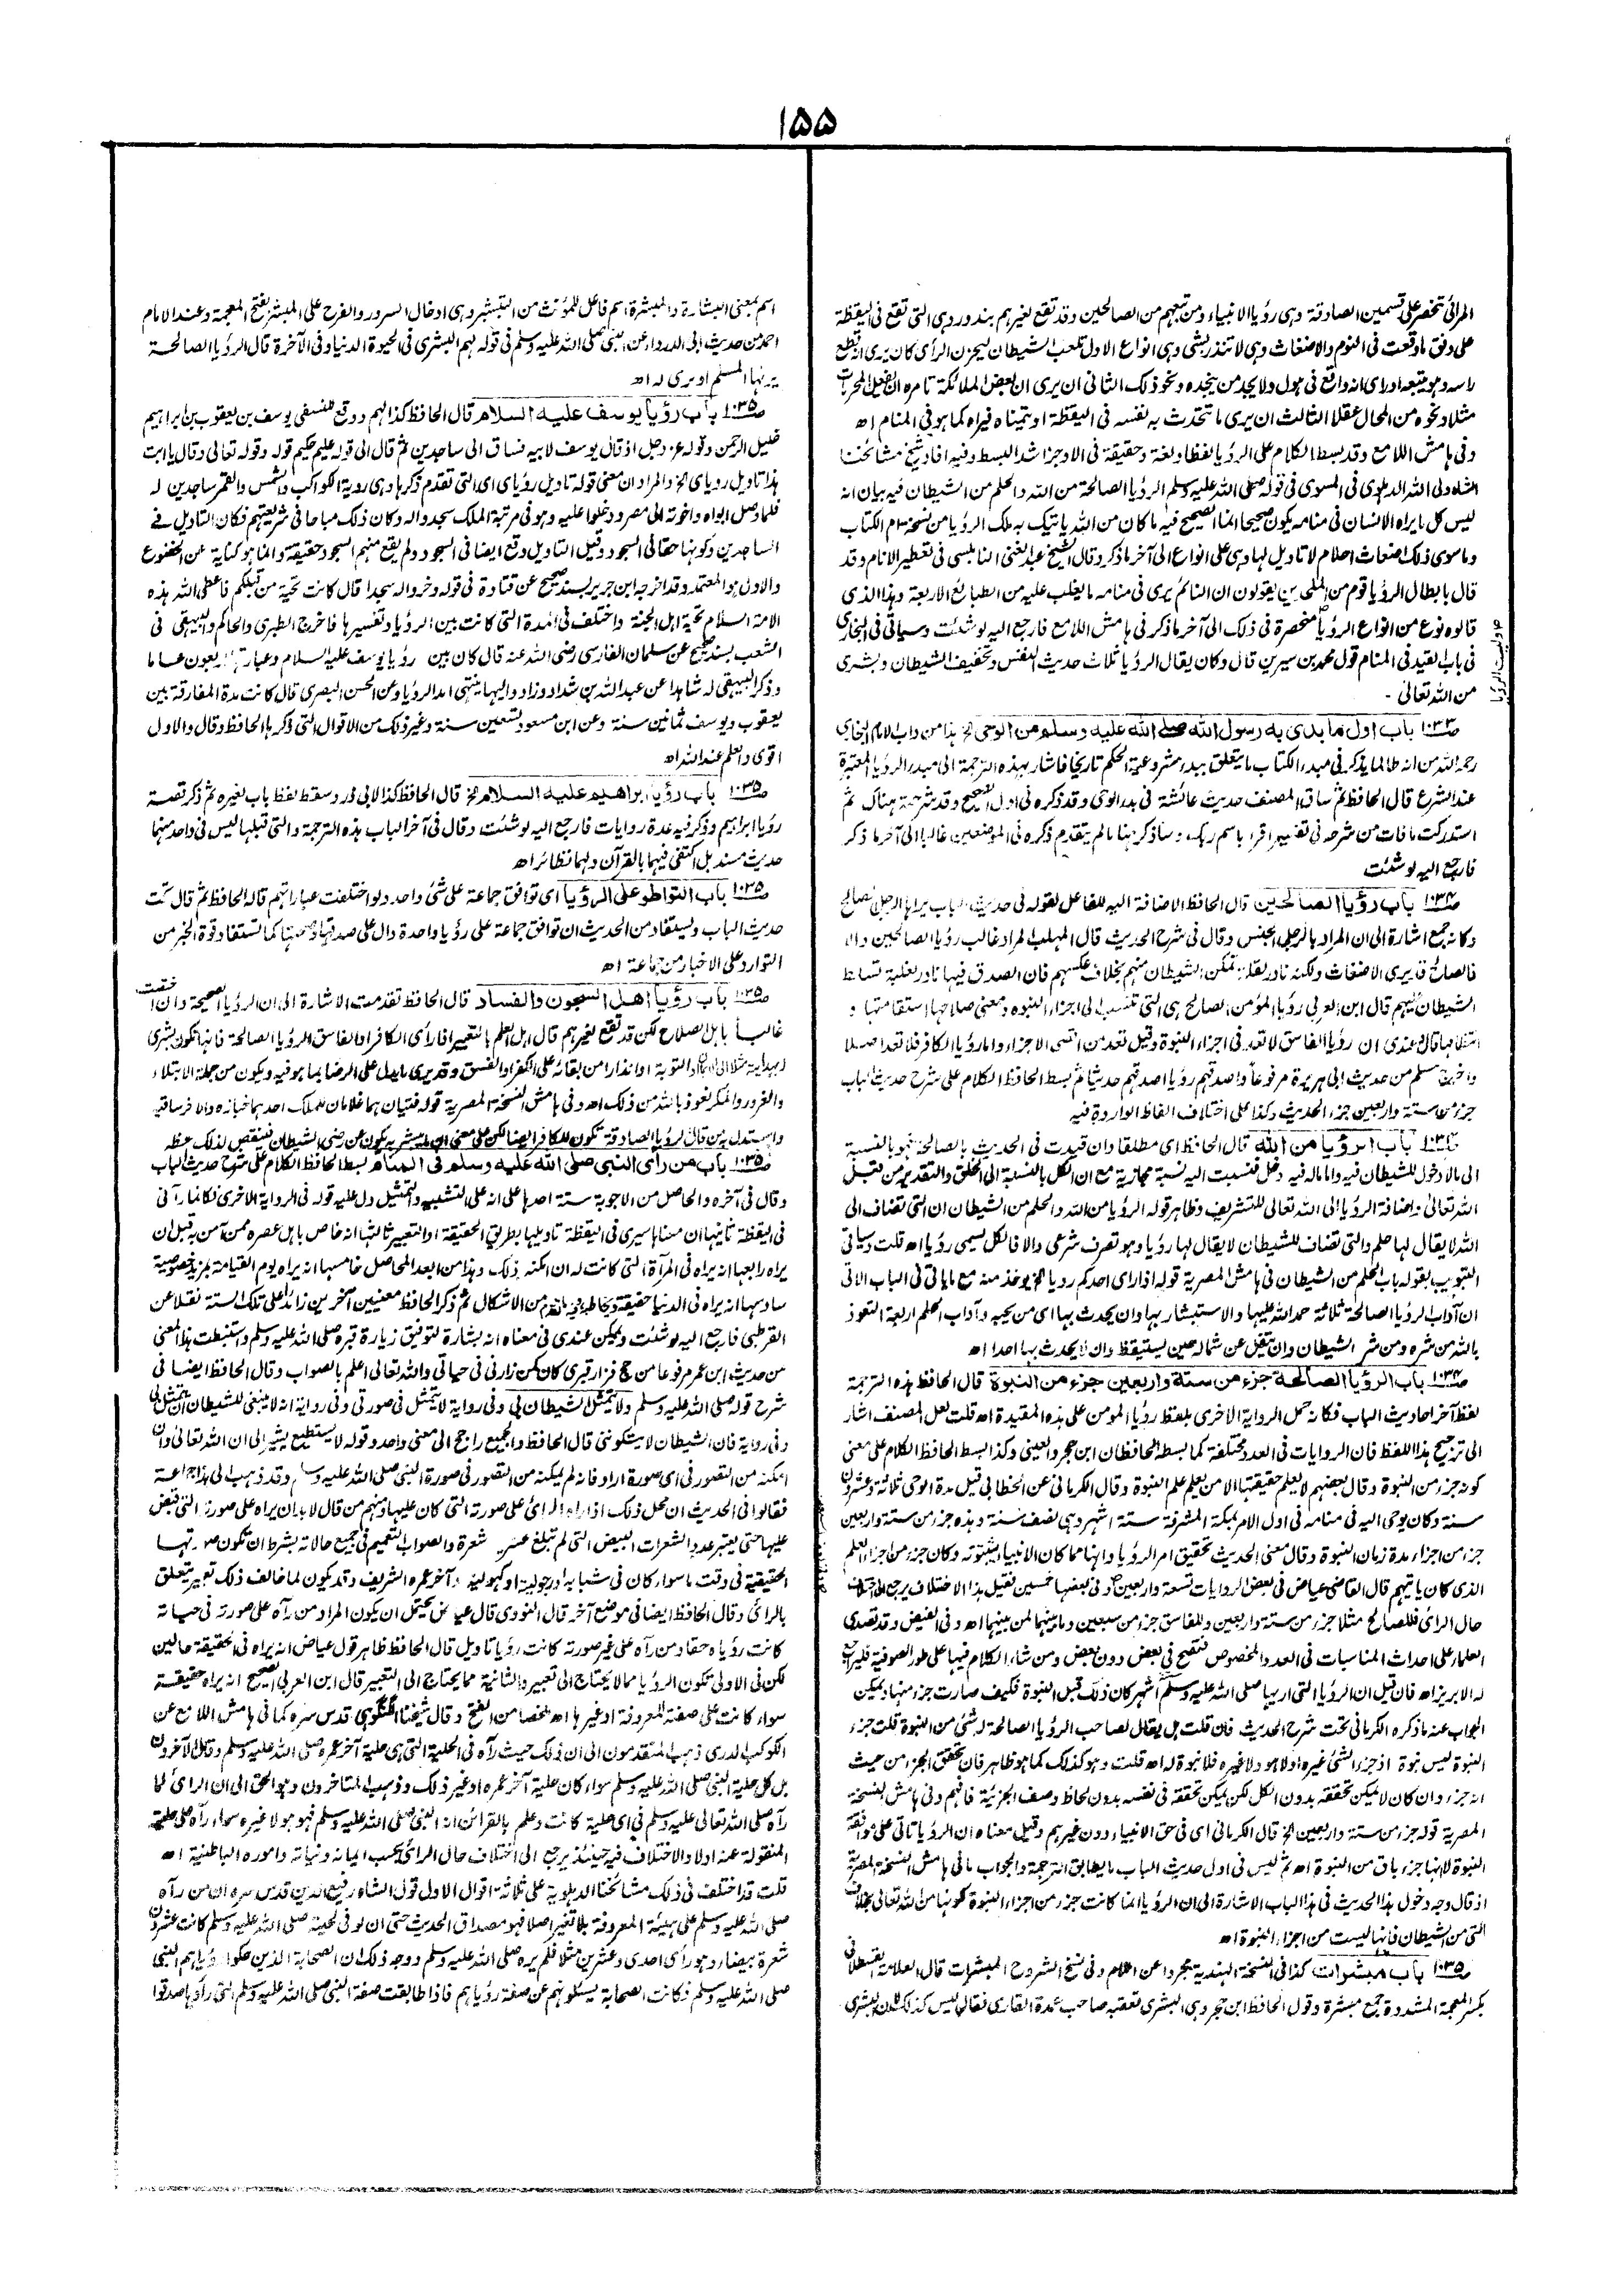 ١٥٥
المرائی تنحصر علی قسمین الصادقة وهی رؤیا الانبیاء ومن تبعهم من الصالحین وقد تقع لغیرهم بندور وهی التی تقع فی الیقظة
علی وفق ما وقعت فی النوم والاضغاث وهی لا تنذر بشیٔ وهی انواع الاول تلعب الشیطان لیحزن الرأی کان یری انه قطع
راسه وهو یتبعه او رای انه واقع فی هول ولا یجد من ینجده ونحو ذلک الثانی ان یری ان بعض الملائکة تامره ان یفعل المحرمات
مثلا ونحوه من المحال عقلا الثالث ان یری ما تتحدث به نفسه فی الیقظة او یتمناه فیراه کما هو فی المنام اھ
وفی هامش اللامع وقد بسط الکلام علی الرؤیا لفظا ولغة وحقیقة فی الاوجز اشد البسط وفیه افاد شیخ مشائخنا
الشاه ولی الله الدهلوی فی المسوی فی قوله صلی الله علیه وسلم الرؤیا الصالحة من الله والحلم من الشیطان فیه بیان انه
لیس کل ما یراه الانسان فی منامه یکون صحیحا انما الصحیح فیه ما کان من الله یاتیک به ملک الرؤیا من نسخة ام الکتاب
وما سوی ذلک اضغاث احلام لا تاویل لها وهی علی انواع الی آخر ما ذکر وقال الشیخ عبد الغنی النابلسی فی تعطیر الانام وقد
قال بابطال الرؤیا قوم من الملحدین یقولون ان النائم یری فی منامه ما یغلب علیه من الطبائع الاربعة وهذا الذی
قالوه نوع من انواع الرؤیا منحصرة فی ذلک الی آخر ما ذکر فی هامش اللامع فارجع الیه لو شئت وسیاتی فی البخاری
ولیست الرؤیا
فی باب القید فی المنام قول محمد بن سیرین قال وکان یقال الرؤیا ثلاث حدیث النفس وتخویف الشیطان وبشری
من الله تعالیٰ -
١٠٣٣ باب اول ما بدی به رسول الله صلی الله علیه وسلم من الوحی الخ هذا من داب الامام البخاری
رحمه الله من انه طالما یذکر فی مبدء الکتاب ما یتعلق ببدء مشروعیة الحکم تاریخا فاشار بهذه الترجمة الی مبدء الرؤیا المعتبرة
عند الشرع قال الحافظ ثم ساق المصنف حدیث عائشة فی بدء الوحی وقد ذکره فی اول الصحیح وقد شرحته هناک ثم
استدرکت ما فات من شرحه فی تفسیر اقرء باسم ربک وساذکر هنا ما لم یتقدم ذکره فی الموضعین غالبا الی آخر ما ذکر
فارجع الیه لو شئت
١٠٣٤ باب رؤیا الصالحین قال الحافظ الاضافة الیه للفاعل لقوله فی حدیث الباب یراها الرجل الصالح
وکانه جمع اشارة الی ان المراد بالرجل الجنس وقال فی شرح الحدیث قال المهلب المراد غالب رؤیا الصالحین والا
فالصالح قد یری الاضغاث ولکنه نادر لقلة تمکن الشیطان منهم بخلاف عکسهم فان الصدق فیها نادر لغلبة تسلط
الشیطان علیهم قال ابن العربی رؤیا المؤمن الصالح هی التی تنسب الی اجزاء النبوة ومعنی صلاحها استقامتها و
انتظامها قال وعندی ان رؤیا الفاسق لا تعد فی اجزاء النبوة وقیل تعد من اقصی الاجزاء واما رؤیا الکافر فلا تعد اصلا
واخرج مسلم من حدیث ابی هریرة مرفوعا واصدقهم رؤیا اصدقهم حدیثا ثم بسط الحافظ الکلام علی شرح حدیث الباب
جزء من ستة واربعین جزء الحدیث وکذا علی اختلاف الفاظ الواردة فیه
١٠٣٤ باب الرؤیا من الله قال الحافظ ای مطلقا وان قیدت فی الحدیث بالصالحة فهو بالنسبة
الی ما لا دخول للشیطان فیه واما ما له فیه دخل فنسبت الیه نسبة مجازیة مع ان الکل بالنسبة الی الخلق والتقدیر من قبل
الله تعالیٰ واضافة الرؤیا الی الله تعالی للتشریف وظاهر قوله الرؤیا من الله والحلم من الشیطان ان التی تضاف الی
الله لا یقال لها حلم والتی تضاف للشیطان لا یقال لها رؤیا وهو تصرف شرعی والا فالکل یسمی رؤیا اھ قلت وسیاتی
التبویب بقوله باب الحلم من الشیطان فی هامش المصریة قوله اذا رای احدکم رؤیا الخ یوخذ منه مع ما یاتی فی الباب الاتی
ان آداب الرؤیا الصالحة ثلاثة حمد الله علیها والاستبشار بها وان یحدث بها ای من یحبه وآداب الحلم اربعة التعوذ
بالله من شره ومن شر الشیطان وان یتفل عن شماله حین یستیقظ وان لا یحدث بها احدا اھ
١٠٣٤ باب الرؤیا الصالحة جزء من ستة واربعین جزء من النبوة قال الحافظ هذه الترجمة
لفظ آخر احادیث الباب فکانه حمل الروایة الاخری بلفظ رؤیا المومن علی هذه المقیدة اھ قلت لعل المصنف اشار
الی ترجیح هذا اللفظ فان الروایات فی العدد مختلفة کما بسطه الحافظان ابن حجر والعینی وکذا بسط الحافظ الکلام علی معنی
کونه جزء من النبوة وقال بعضهم لا یعلم حقیقتها الا من یعلم علم النبوة وقال الکرمانی عن الخطابی قیل مدة الوحی ثلاثة وعشرون
سنة وکان یوحی الیه فی منامه فی اول الامر بمکة المشرفة ستة اشهر وهی نصف سنة وهذه جزء من ستة واربعین
جزء من اجزاء مدة زمان النبوة وقال معنی الحدیث تحقیق امر الرؤیا وانها مما کان الانبیاء یثبتونه وکان جزء من اجزاء العلم
الذی کان یاتیهم قال القاضی عیاض فی بعض الروایات تسعة واربعین وفی بعضها خمسین فقیل هذا الاختلاف یرجع الی اختلاف
حال الرائ فللصالح مثلا جزء من ستة واربعین وللفاسق جزء من سبعین وما بینهما لمن بینهما اھ وفی الفیض وقد تصدی
العلماء علی احداث المناسبات فی العدد المخصوص فتقح فی بعض دون بعض ومن شاء الکلام فیها علی طور الصوفیة فلیراجع
له الابریز اھ فان قیل ان الرؤیا التی اریها صلی الله علیه وسلم اشهر کان ذلک قبل النبوة فکیف صارت جزء منها ویمکن
الجواب عنه ما ذکره الکرمانی تحت شرح الحدیث فان قلت هل یقال لصاحب الرؤیا الصالحة له شیٔ من النبوة قلت جزء
النبوة لیس نبوة اذ جزء الشیٔ غیره او لا هو ولا غیره فلا نبوة له اھ قلت وهو کذلک کما هو ظاهر فان تحقق الجزء من حیث
انه جزء وان کان لا یمکن تحققه بدون الکل لکن یمکن تحققه فی نفسه بدون لحاظ وصف الجزئیة فافهم وفی هامش النسخة
المصریة قوله جزء من ستة واربعین الخ قال الکرمانی ای فی حق الانبیاء دون غیرهم وقیل معناه ان الرؤیا تاتی علی موافقة
النبوة لا انها جزء باق من النبوة اھ ثم لیس فی اول حدیث الباب ما یطابق الترجمة والجواب ما فی هامش النسخة المصریة
اذ قال وجه دخول هذا الحدیث فی هذا الباب الاشارة الی ان الرؤیا انما کانت جزء من اجزاء النبوة کونها من الله تعالی بخلاف
التی من الشیطان فانها لیست من اجزاء النبوة اھ
١٠٣٥ باب مبشرات کذا فی النسخة الهندیة مجردا عن اللام وفی نسخ الشروح المبشرات قال العلامة القسطلانی
بکسر المعجمة المشددة جمع مبشرة وقول الحافظ ابن حجر وهی البشری تعقبه صاحب عمدة القاری فقال لیس کذلک لان البشری
اسم بمعنی البشارة والمبشرة اسم فاعل للمؤنث من التبشیر وهی ادخال السرور والفرح علی المبشر بفتح المعجمة وعند الامام
احمد من حدیث ابی الدرداء عن النبی صلی الله علیه وسلم فی قوله لهم البشری فی الحیوة الدنیا وفی الآخرة قال الرؤیا الصالحة
یراها المسلم او یری له اھ
١٠٣٥ باب رؤیا یوسف علیه السلام قال الحافظ کذا لهم ووقع للنسفی یوسف بن یعقوب بن ابراهیم
خلیل الرحمن وقوله عز وجل اذ قال یوسف لابیه فساق الی ساجدین ثم قال الی قوله علیم حکیم قوله وقوله تعالی وقال یا ابت
هذا تاویل رؤیای الخ والمراد ان معنی قوله تاویل رؤیای ای التی تقدم ذکرها وهی رویة الکواکب والشمس والقمر ساجدین له
فلما وصل ابواه واخوته الی مصر ودخلوا علیه وهو فی مرتبة الملک سجدوا له وکان ذلک مباحا فی شریعتهم فکان التاویل فی
الساجدین وکونها حقا فی السجود وقیل التاویل وقع ایضا فی السجود ولم یقع منهم السجود حقیقة وانما هو کنایة عن الخضوع
والاول هو المعتمد وقد اخرجه ابن جریر بسند صحیح عن قتادة فی قوله وخروا له سجدا قال کانت تحیة من قبلکم فاعطی الله هذه
الامة السلام تحیة اهل الجنة واختلف فی المدة التی کانت بین الرؤیا وتفسیرها فاخرج الطبری والحاکم والبیهقی فی
الشعب بسند صحیح عن سلمان الفارسی رضی الله عنه قال کان بین رؤیا یوسف علیه السلام وعبارتها اربعون عاما
وذکر البیهقی له شاهدا عن عبد الله بن شداد وزاد والیها ینتهی امد الرؤیا وعن الحسن البصری قال کانت مدة المفارقة بین
یعقوب ویوسف ثمانین سنة وعن ابن مسعود تسعین سنة وغیر ذلک من الاقوال التی ذکرها الحافظ وقال والاول
اقوی والعلم عند الله اھ
١٠٣٥ باب رؤیا ابراهیم علیه السلام الخ قال الحافظ کذا لابی ذر وسقط لفظ باب لغیره ثم ذکر قصة
رؤیا ابراهیم وذکر فیه عدة روایات فارجع الیه لو شئت وقال فی آخر الباب هذه الترجمة والتی قبلها لیس فی واحد منهما
حدیث مسند بل اکتفی فیهما بالقرآن ولهما نظائر اھ
١٠٣٥ باب التواطو علی الرؤیا ای توافق جماعة علی شیٔ واحد ولو اختلفت عباراتهم قاله الحافظ ثم قال تحت
حدیث الباب ویستفاد من الحدیث ان توافق جماعة علی رؤیا واحدة دال علی صدقها وصحتها کما تستفاد قوة الخبر من
التوارد علی الاخبار من جماعة اھ
١٠٣٥ باب رؤیا اهل السجون والفساد قال الحافظ تقدمت الاشارة الی ان الرؤیا الصحیحة وان اختصت
غالبا باهل الصلاح لکن قد تقع لغیرهم قال اهل العلم بالتعبیر اذا رأی الکافر او الفاسق الرؤیا الصالحة فانها تکون بشری
لهدایته مثلا الی الایمان او التوبة او انذارا من بقائه علی الکفر او الفسق وقد یری ما یدل علی الرضا بما هو فیه ویکون من جملة الابتلاء
والغرور والمکر نعوذ بالله من ذلک اھ وفی هامش النسخة المصریة قوله فتیان هما غلامان للملک احدهما خبازه والاخر ساقیه
واستدل به من قال الرؤیا الصادقة تکون للکافر ایضا لکن علی معنی ان ما یبشر به یکون عن رضی الشیطان فینقص لذلک حظه
١٠٣٥ باب من رأی النبی صلی الله علیه وسلم فی المنام بسط الحافظ الکلام علی شرح حدیث الباب
وقال فی آخره والحاصل من الاجوبة ستة احدها علی انه علی التشبیه والتمثیل دل علیه قوله فی الروایة الاخری لکانما رآنی
فی الیقظة ثانیها ان معناها سیری فی الیقظة تاویلها بطریق الحقیقة او التعبیر ثالثها انه خاص باهل عصره ممن آمن به قبل ان
یراه رابعها انه یراه فی المرآة التی کانت له ان امکنه ذلک وهذا من ابعد المحامل خامسها انه یراه یوم القیامة بمزید خصوصیة
سادسها انه یراه فی الدنیا حقیقة ویخاطبه وفیه ما تقدم من الاشکال ثم ذکر الحافظ معنیین آخرین زائدا علی تلک الستة نقلا عن
القرطبی فارجع الیه لو شئت ویمکن عندی فی معناه انه بشارة لتوفیق زیارة قبره صلی الله علیه وسلم واستنبطت هذا المعنی
من حدیث ابن عمر مرفوعا من حج فزار قبری کان کمن زارنی فی حیاتی والله تعالی اعلم بالصواب وقال الحافظ ایضا فی
شرح قوله صلی الله علیه وسلم ولا یتمثل الشیطان بی وفی روایة لا یتمثل فی صورتی وفی روایة انه لا ینبغی للشیطان ان یتمثل بی
وفی روایة فان الشیطان لا یتکوننی قال الحافظ والجمیع راجع الی معنی واحد وقوله لا یستطیع یشیر الی ان الله تعالی وان
امکنه من التصور فی ای صورة اراد فانه لم یمکنه من التصور فی صورة النبی صلی الله علیه وسلم وقد ذهب الی هذا جماعة
فقالوا فی الحدیث ان محل ذلک اذا رآه الرائ علی صورته التی کان علیها ومنهم من قال لا بد ان یراه علی صورته التی قبض
علیها حتی یعتبر عدد الشعرات البیض التی لم تبلغ عشرین شعرة والصواب التعمیم فی جمیع حالاته بشرط ان تکون صورتها
الحقیقیة فی وقت ما سواء کان فی شبابه او رجولیته او کهولیته او آخر عمره الشریف وقد یکون لما خالف ذلک تعبیر یتعلق
بالرائ وقال الحافظ ایضا فی موضع آخر قال النووی قال عیاض یحتمل ان یکون المراد من رآه علی صورته فی حیاته
کانت رؤیاه حقا ومن رآه علی غیر صورته کانت رؤیا تاویل قال الحافظ ظاهر قول عیاض انه یراه فی الحقیقة حالین
لکن فی الاولی تکون الرؤیا مما لا یحتاج الی تعبیر والثانیة مما یحتاج الی التعبیر قال ابن العربی الصحیح انه یراه حقیقة
سواء کانت علی صفته المعروفة او غیرها اھ ملخصا من الفتح وقال شیخنا الکنکوهی قدس سره کما فی هامش اللامع عن
الکوکب الدری ذهب المتقدمون الی ان ذلک حیث رآه فی الحلیة التی هی حلیة آخر عمره صلی الله علیه وسلم وقال الآخرون
بل کل حلیة النبی صلی الله علیه وسلم سواء کان حلیة آخر عمره او غیر ذلک وذهب المتاخرون وهو الحق الی ان الرائ لما
رآه صلی الله تعالی علیه وسلم فی ای حلیة کانت وعلم بالقرائن انه النبی صلی الله علیه وسلم فهو هو لا غیره سواء رآه علی حلیته
المنقولة عنه اولا والاختلاف فیه حینئذ یرجع الی اختلاف حال الرائ بحسب ایمانه ونیاته واموره الباطنیة اھ
قلت قد اختلف فی ذلک مشائخنا الدهلویة علی ثلاثة اقوال الاول قول الشاه رفیع الدین قدس سره ان من رآه
صلی الله علیه وسلم علی هیئته المعروفة بلا تغیر اصلا فهو مصداق الحدیث حتی ان لو فی لحیته صلی الله علیه وسلم کانت عشرون
شعرة بیضاء وهو رأی احدی وعشرین مثلا فلم یره صلی الله علیه وسلم ووجه ذلک ان الصحابة الذین حکوا رؤیاهم النبی
صلی الله علیه وسلم فکانت الصحابة یسئلونهم عن صفة رؤیاهم فاذا طابقت صفة النبی صلی الله علیه وسلم التی رأوها صدقوا